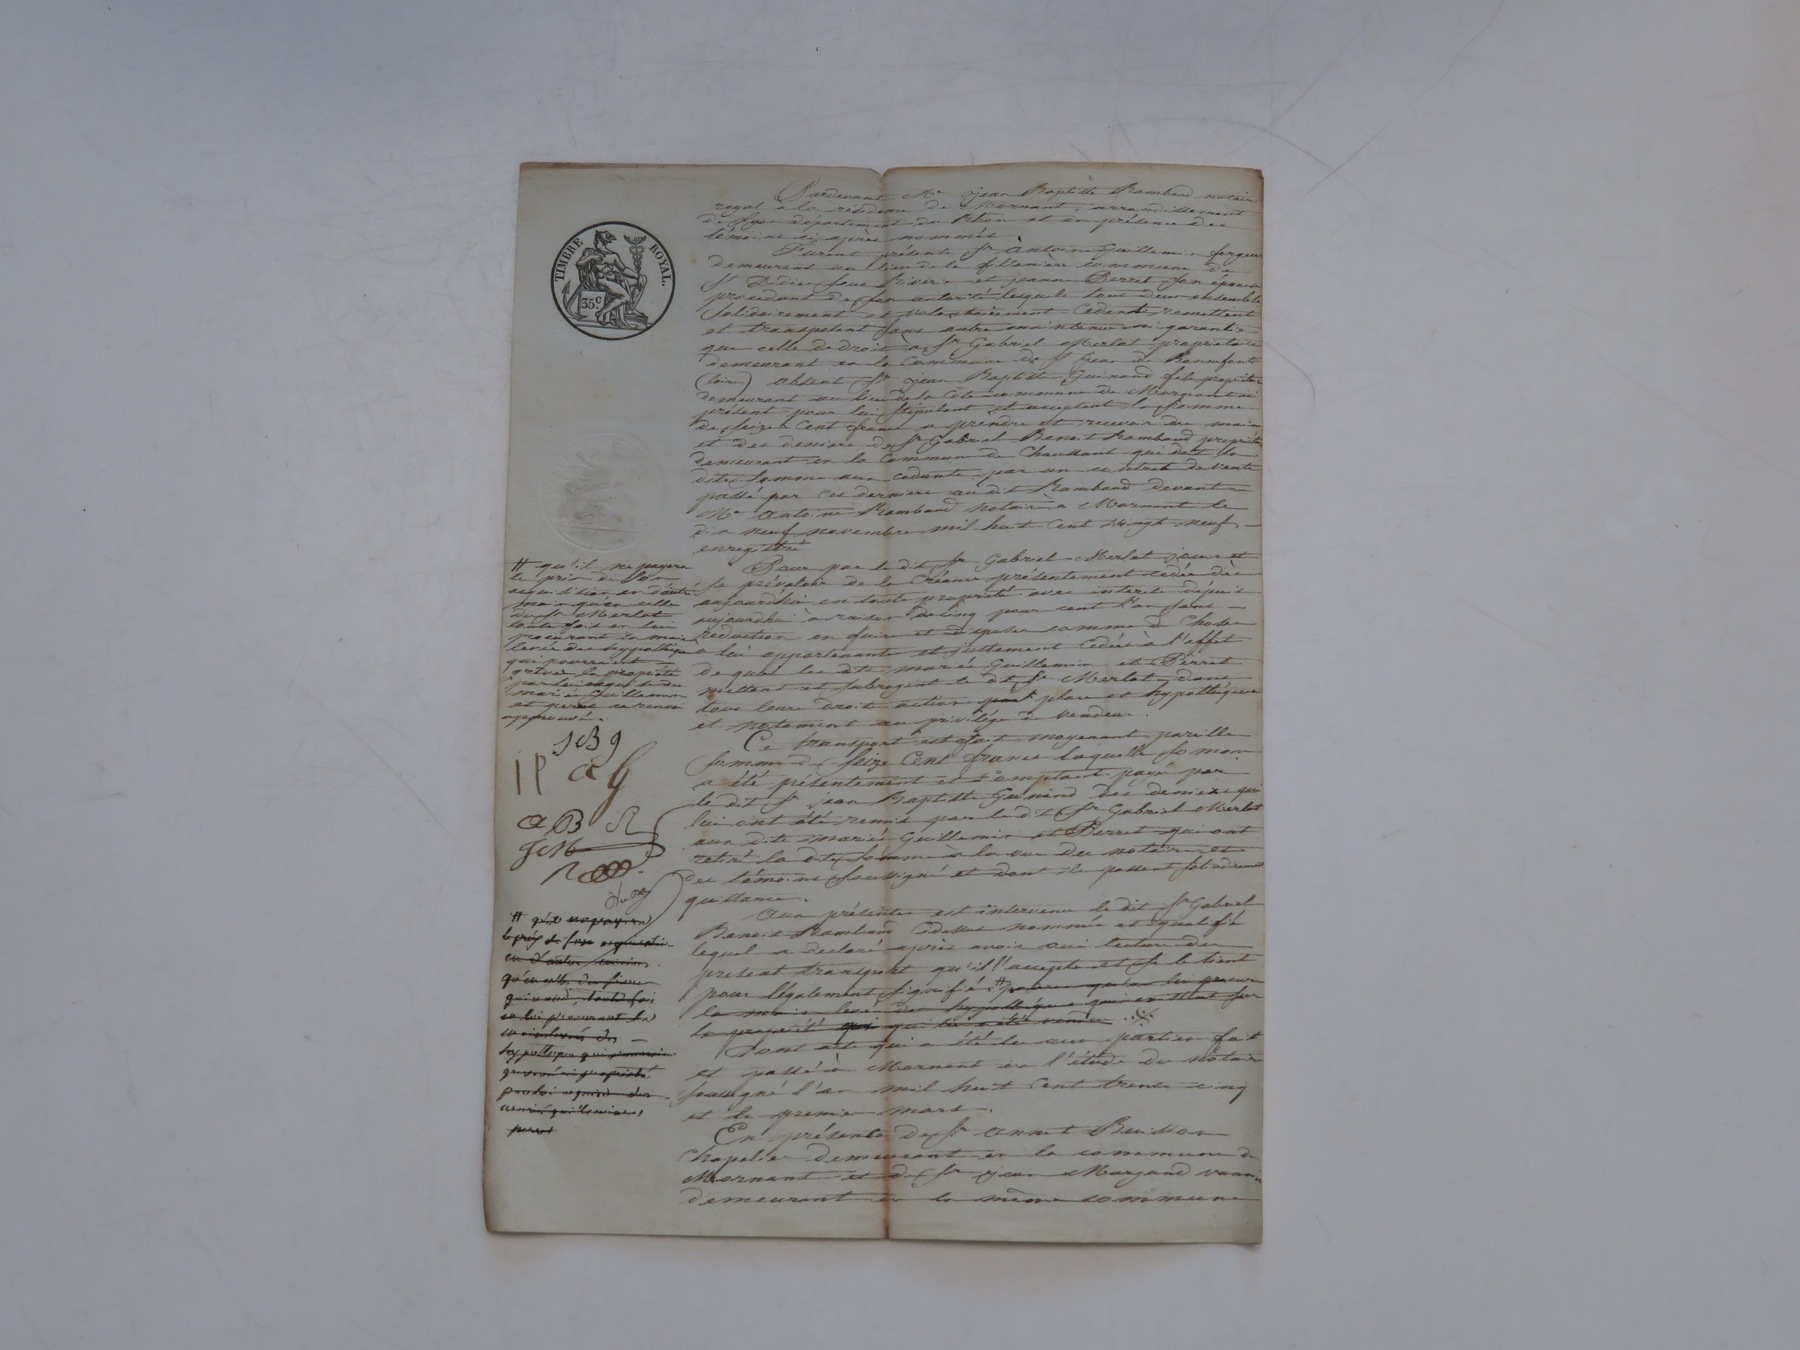 TIMBRE ROYAL.
35 c
Pardevant Me jean Baptiste Rambaud notaire
royal à la résidence de Mornant, arrondissement
de Lyon département du Rhone et en présence des
témoins ci après nommés
Furent présents Sr Antoine Guillemin forgeur
demeurant au lieu de la commune de
St Didier sous Riverie et jeanne Perret son épouse
procédant de son autorité lesquels tous deux ensemble
solidairement et cèdent remettent
et transportent sans autre maintenue ni garantie
que celle de droit à Sr Gabriel Merlat propriétaire
demeurant en la Commune de St Jean de Bonnefont
(loire) absent Sr jean Baptiste Guinand fils propriétaire
demeurant au lieu de la Côte commune de Mornant ici
présent pour lui stipulant et acceptant la somme
de seize Cent francs a prendre et recevoir des mains
et des deniers de Sr Gabriel Benoit Rambaud propriétaire
demeurant en la Commune de Chaussant qui doit la
dite somme aux cédants par un contrat de vente
passé par ces derniers audit Rambaud devant
Me Antoine Rambaud notaire à Mornant le
dix neuf novembre mil huit cent vingt neuf,
enregistré
Pour par le dit Sr Gabriel Merlat jouir et
se prévaloir de la Créance présentement cédée dès
aujourdhui en toute propriété avec intérêt depuis
aujourdhui à raison de cinq pour cent l'an sans
réduction en faire et disposer comme de chose
a lui appartenante et justement Cédée à l'effet
de quoi les dits mariés Guillemin et Perret
mettent et subrogent le dit Sr Merlat, dans
tous leurs droits actions place et hypothèques
et notament au privilége de vendeur.
Ce transport est fait moyenant pareille
somme de seize Cent francs laquelle somme
a été présentement et comptant payé par
le dit Sr jean Baptiste Guinand des deniers qui
lui ont été remis par le dit Sr Gabriel Merlat
aux dits mariés Guillemin et Perret qui ont
retiré la dite somme à la vue des notaire et
des témoins soussignés et dont ils passent solidairement
quittance.
Aux présentes est intervenu le dit Sr Gabriel
Benoit Rambaud Cidessus nommé et qualifié
lequel a declaré après avoir oui lecture du
présent transport qu'il l'accepte et se le tient
pour légalement signifié, # pourvu qu'on lui procure
la main levée des hypothéques qui existent sur
la propriété qui qui lui a été vendue
Dont acte qui a été lu aux parties fait
et passé à Mornant en l'étude du notaire
soussigné l'an mil huit Cent trente cinq
et le premier mars.
En présence de Sr annet Buisson
Chapelier demeurant en la commune de
Mornant et de Sr jean Marjand
demeurant en la même commune
# qu'il ne payera
le prix de son
acquisition en d'autres
mains qu'en celles
du Sr Merlat
toute fois en lui
procurant la main
levée des hypothèques
qui pourraient
gréver la propriété
par lui acquise des
mariés Guillemin
et perret ce renvoi
approuvé.
JBg
JP aG
aB R
JM
R
# qu'il ne payera
le prix de son acquisition
en d'autres mains
qu'en celles du sieur
guinand, toutefois
en lui procurant la
mainlevée des
hypothèques qui pourraient
grever la propriété
par lui acquise des
mariés guillemin et
perret